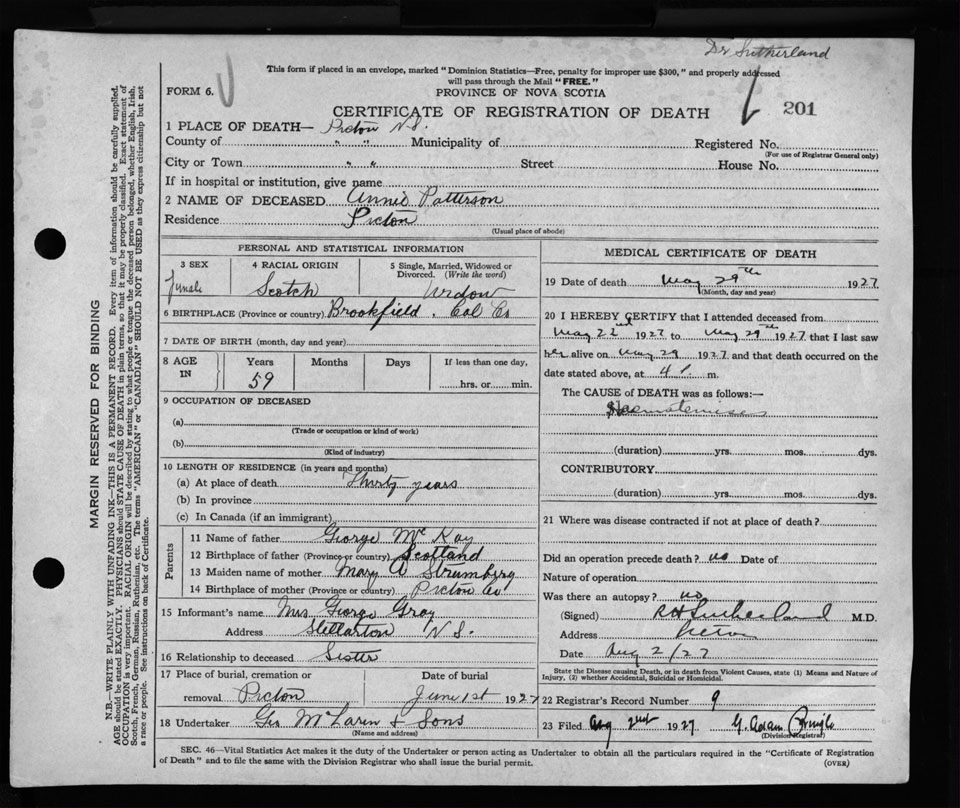 Dr Sutherland
This form if placed in an envelope, marked "Dominion Statistics—Free, penalty for improper use $300," and properly addressed
will pass through the Mail "FREE."
FORM 6.
PROVINCE OF NOVA SCOTIA
CERTIFICATE OF REGISTRATION OF DEATH
201
1 PLACE OF DEATH— Pictou N.S.
County of " " Municipality of Registered No.
(For use of Registrar General only)
City or Town " " Street House No.
If in hospital or institution, give name
2 NAME OF DECEASED Annie Patterson
Residence Pictou
(Usual place of abode)
PERSONAL AND STATISTICAL INFORMATION
3 SEX
female
4 RACIAL ORIGIN
Scotch
5 Single, Married, Widowed or Divorced. (Write the word)
Widow
6 BIRTHPLACE (Province or country) Brookfield. Col Co
7 DATE OF BIRTH (month, day and year)
8 AGE IN
Years Months Days If less than one day,
59 hrs. or min.
9 OCCUPATION OF DECEASED
(a)
(Trade or occupation or kind of work)
(b)
(Kind of industry)
10 LENGTH OF RESIDENCE (in years and months)
(a) At place of death Thirty years
(b) In province
(c) In Canada (if an immigrant)
Parents
11 Name of father George McKay
12 Birthplace of father (Province or country) Scotland
13 Maiden name of mother Mary A Strumberg
14 Birthplace of mother (Province or country) Pictou Co
15 Informant's name Mrs. George Gray
Address Stellarton N.S.
16 Relationship to deceased Sister
17 Place of burial, cremation or removal Pictou
Date of burial
June 1st 1927
18 Undertaker Geo McLaren & Sons
(Name and address)
MEDICAL CERTIFICATE OF DEATH
19 Date of death May 29th 1927
(Month, day and year)
20 I HEREBY CERTIFY that I attended deceased from
May 22nd 1927 to May 29th 1927 that I last saw
her alive on May 29 1927 and that death occurred on the
date stated above, at 4 P. m.
The CAUSE of DEATH was as follows:—
Haematemisis
(duration) yrs. mos. dys.
CONTRIBUTORY
(duration) yrs. mos. dys.
21 Where was disease contracted if not at place of death?
Did an operation precede death? no Date of
Nature of operation
Was there an autopsy? no
(Signed) R H Sutherland M.D.
Address Pictou
Date Aug 2/27
State the Disease causing Death, or in death from Violent Causes, state (1) Means and Nature of
Injury, (2) whether Accidental, Suicidal or Homicidal.
22 Registrar's Record Number 9
23 Filed Aug 2nd 1927 G. Adam Pringle
(Division Registrar)
SEC. 46—Vital Statistics Act makes it the duty of the Undertaker or person acting as Undertaker to obtain all the particulars required in the "Certificate of Registration
of Death" and to file the same with the Division Registrar who shall issue the burial permit. (OVER)
MARGIN RESERVED FOR BINDING
N.B.—WRITE PLAINLY WITH UNFADING INK—THIS IS A PERMANENT RECORD. Every item of information should be carefully supplied.
AGE should be stated EXACTLY. PHYSICIANS should STATE CAUSE OF DEATH in plain terms, so that it may be properly classified. Exact statement of
OCCUPATION is very important. RACIAL ORIGIN will be described by stating to what people or tongue the deceased person belonged, whether English, Irish,
Scotch, French, German, Russian, Ruthenian, etc. The terms "AMERICAN" or "CANADIAN" SHOULD NOT BE USED as they express citizenship but not
a race or people. See instructions on back of Certificate.